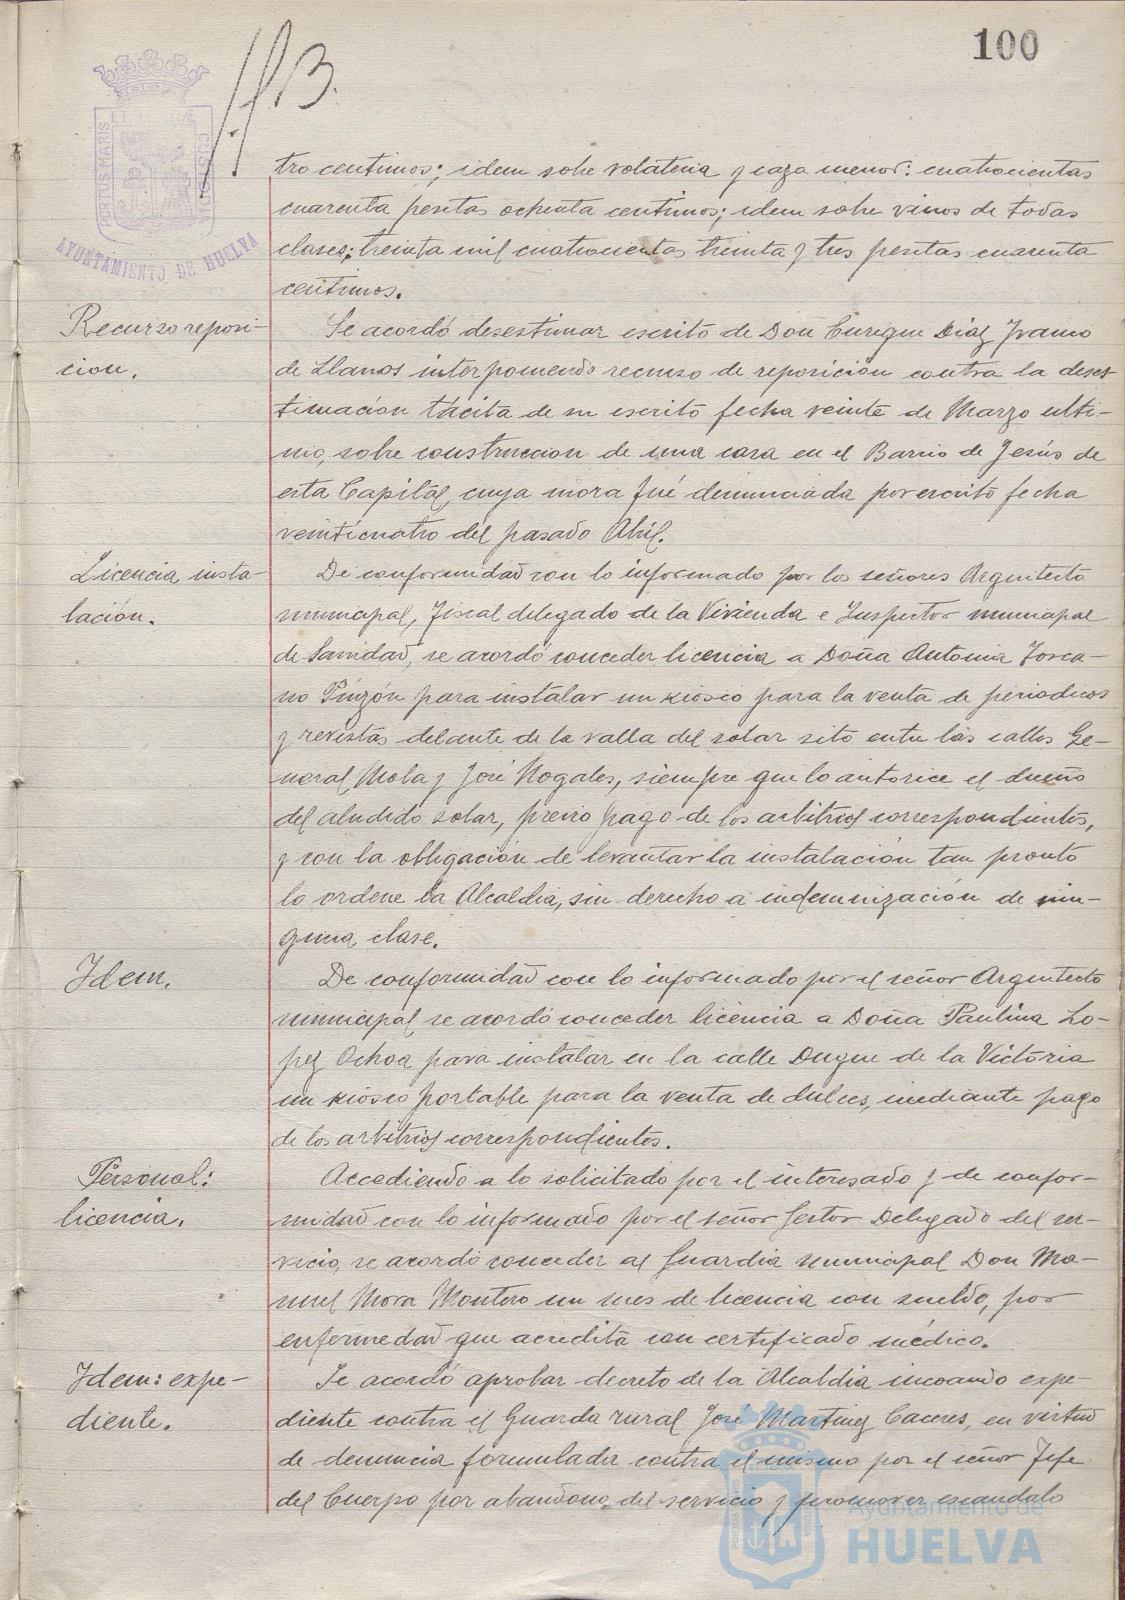 100
PORTUS MARIS ET TERRAE CUSTODIA
AYUNTAMIENTO DE HUELVA
tro centimos; idem sobre volateria y caza menor: cuatrocientas
cuarenta pesetas ochenta centimos; idem sobre vinos de todas
clases; treinta mil cuatrocientas treinta y tres pesetas cuarenta
centimos.
Recurso reposi-
cion.
Se acordó desestimar escrito de Don Enrique Diaz
de Llanos interponiendo recurso de reposición contra la deses
timación tácita de su escrito fecha veinte de Marzo ulti-
mo, sobre construccion de una casa en el Barrio de Jesús de
esta Capital, cuya mora fué denunciada por escrito fecha
veinticuatro del pasado Abril.
Licencia insta-
lación.
De conformidad con lo informado por los señores Arquitecto
municipal, Fiscal delegado de la Vivienda e Inspector municipal
de Sanidad, se acordó conceder licencia a Doña Antonia Tosca-
no Pinzón para instalar un kiosco para la venta de periodicos
y revistas delante de la valla del solar sito entre las calles Ge-
neral Mola y José Nogales, siempre que lo autorice el dueño
del aludido solar, previo pago de los arbitrios correspondientes,
y con la obligación de levantar la instalación tan pronto
lo ordene la Alcaldia, sin derecho a indemnización de nin-
guna clase.
Idem.
De conformidad con lo informado por el señor Arquitecto
municipal, se acordó conceder licencia a Doña Paulina Lo-
pez Ochoa para instalar en la calle Duque de la Victoria
un kiosco portable para la venta de dulces, mediante pago
de los arbitrios correspondientes.
Personal:
licencia.
Accediendo a lo solicitado por el interesado y de confor-
midad con lo informado por el señor Gestor Delegado del ser-
vicio, se acordó conceder al Guardia municipal Don Ma-
nuel Mora Montero un mes de licencia con sueldo, por
enfermedad que acredita con certificado médico.
Idem: expe-
diente.
Se acordó aprobar decreto de la Alcaldia incoando expe-
diente contra el Guarda rural José Martinez Caceres, en virtud
de denuncia formulada contra el mismo por el señor Jefe
del Cuerpo por abandono del servicio y promover escandalo
Ayuntamiento de
HUELVA